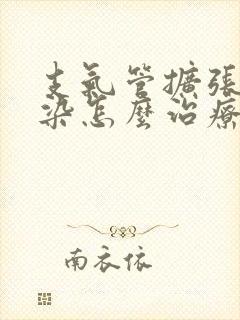 支氣管擴張
染怎麼治療
南衣依